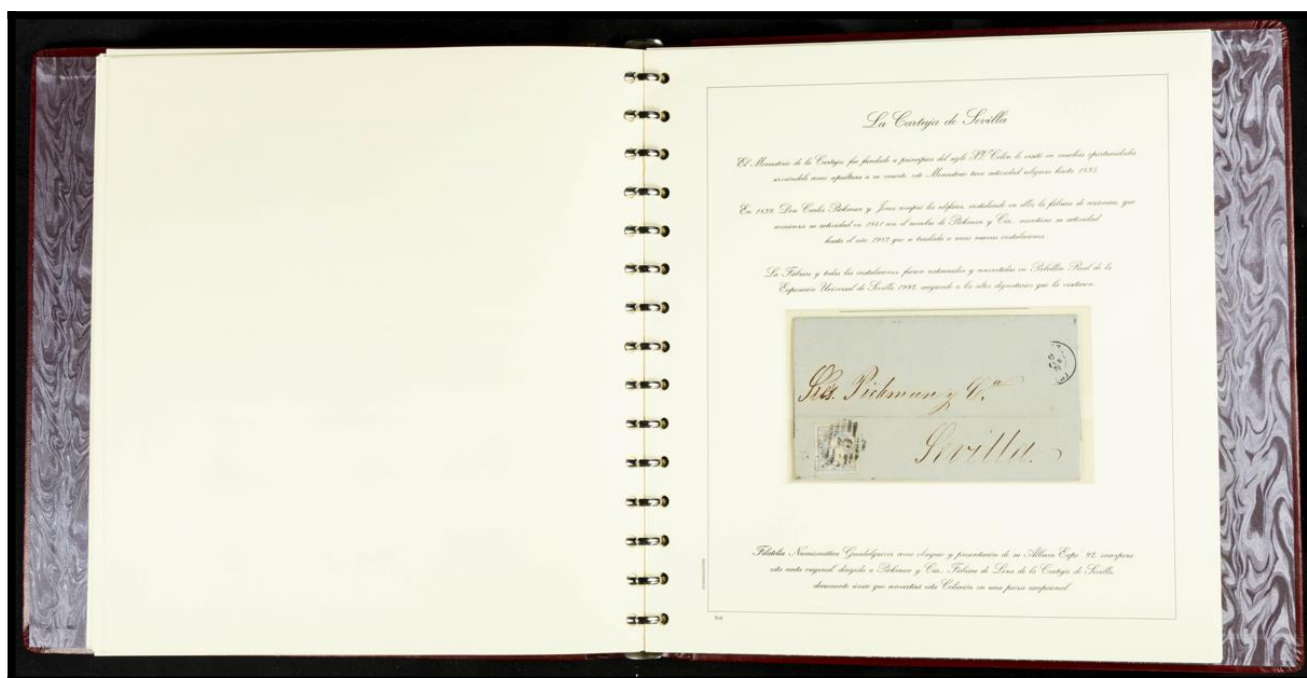 La Cartuja de Sevilla
El Monasterio de la Cartuja, fue fundado a principios del siglo XV. Colón lo visitó en muchas oportunidades
sirviéndole como sepultura a su muerte, este Monasterio tuvo actividad religiosa hasta 1835.
En 1839, Don Carlos Pickman y Jones compró los edificios, instalando en ellos la fábrica de cerámica, que
comienza su actividad en 1841 con el nombre de Pickman y Cía., mantiene su actividad
hasta el año 1982 que se traslada a unas nuevas instalaciones.
La Fábrica y todas las instalaciones fueron restauradas y convertidas en Pabellón Real de la
Exposición Universal de Sevilla 1992, acogiendo a los altos dignatarios que la visitaron.
Sres. Pickman y C.ª
Sevilla.
Filatelia Numismática Guadalquivir como obsequio y presentación de su Álbum Expo '92, incorpora
esta carta original dirigida a Pickman y Cía., Fábrica de Loza de la Cartuja de Sevilla,
documento único que convertirá esta Colección en una pieza excepcional.